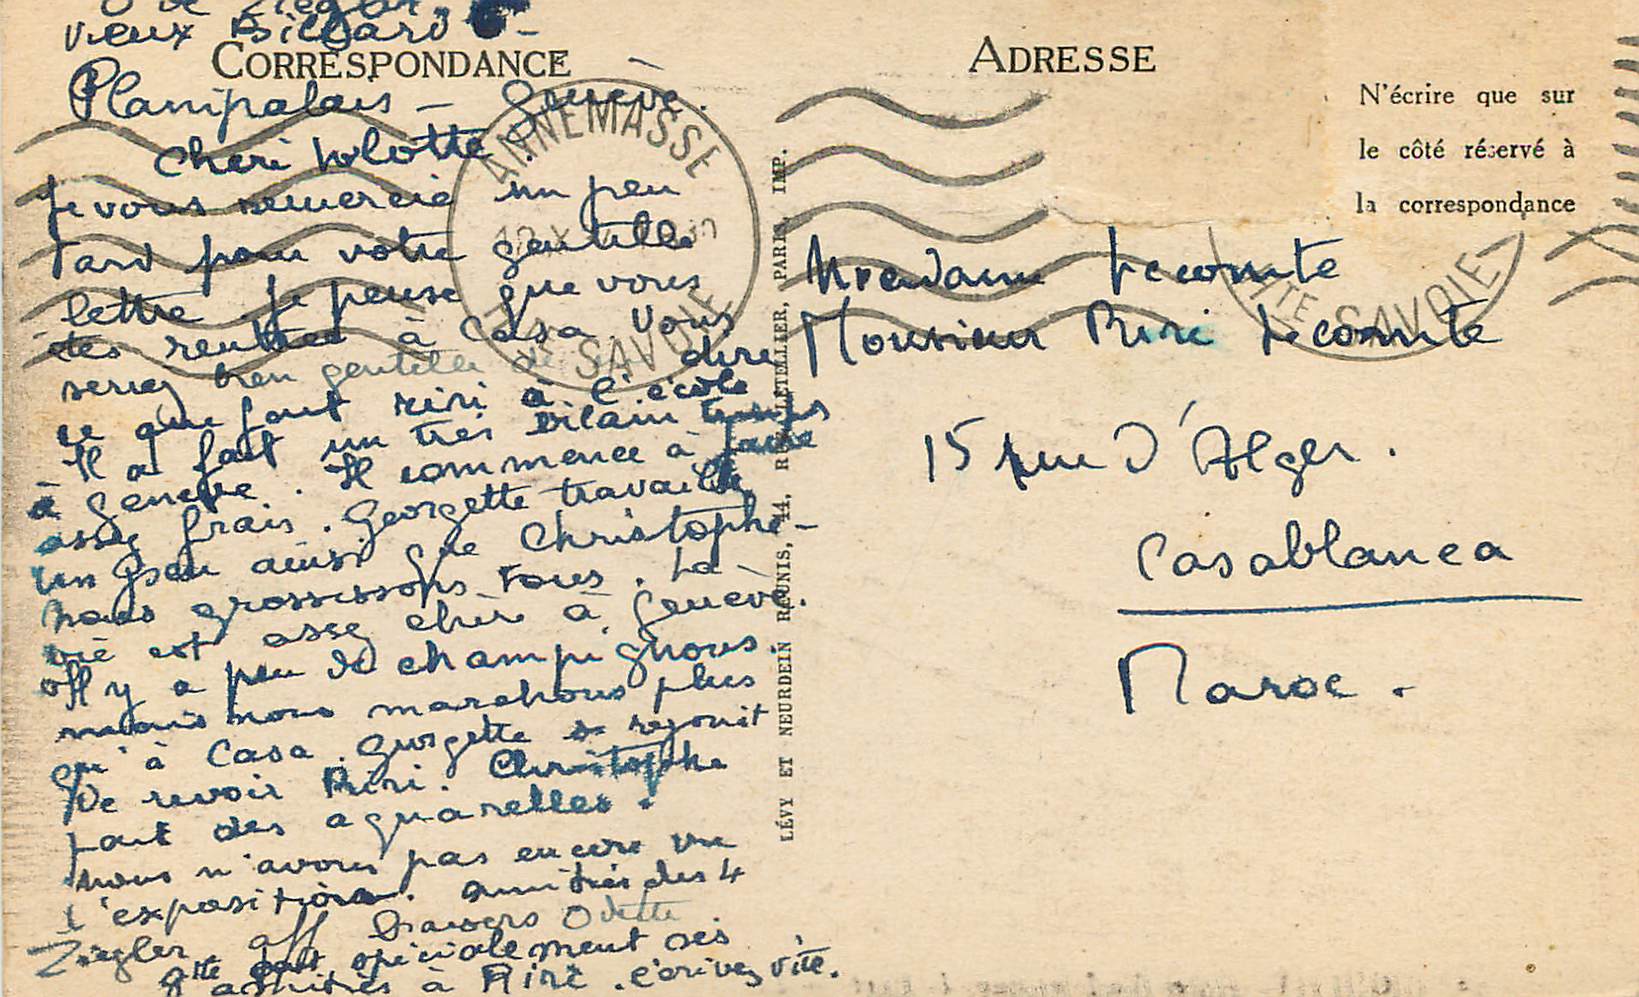 O de Ziegler
vieux Billard
CORRESPONDANCE
Plainpalais - Genève.
Cheri Volotte
Je vous remercie un peu
Tard pour votre gentille
lettre. Je pense que vous
êtes rentrée à Casa. Vous
seriez bien gentille de me dire
ce que fait Riri à l'école
Il a fait un très vilain temps
à Genève. Il commence à faire
assez frais. Georgette travaille
un peu ainsi que Christophe -
nous grossissons tous. La -
vie est assez chère à Genève.
Il y a peu de champignons.
mais nous marchons plus
qu'à Casa. Georgette se rejouit
De revoir Riri. Christophe
fait des aquarelles.
Nous n'avons pas encore vu
l'exposition. Amitiés des 4
Ziegler aff baisers Odette
Gtte fait spécialement ses
amitiés à Riri. écrivez vite.
ANNEMASSE
HTE SAVOIE
LÉVY ET NEURDEIN RÉUNIS, 44, RUE LETELLIER, PARIS IMP.
ADRESSE
N'écrire que sur
le côté réservé à
la correspondance
HTE SAVOIE
Madame Lecomte
Monsieur Riri Lecomte
15 rue D'Alger.
Casablanca
Maroc.